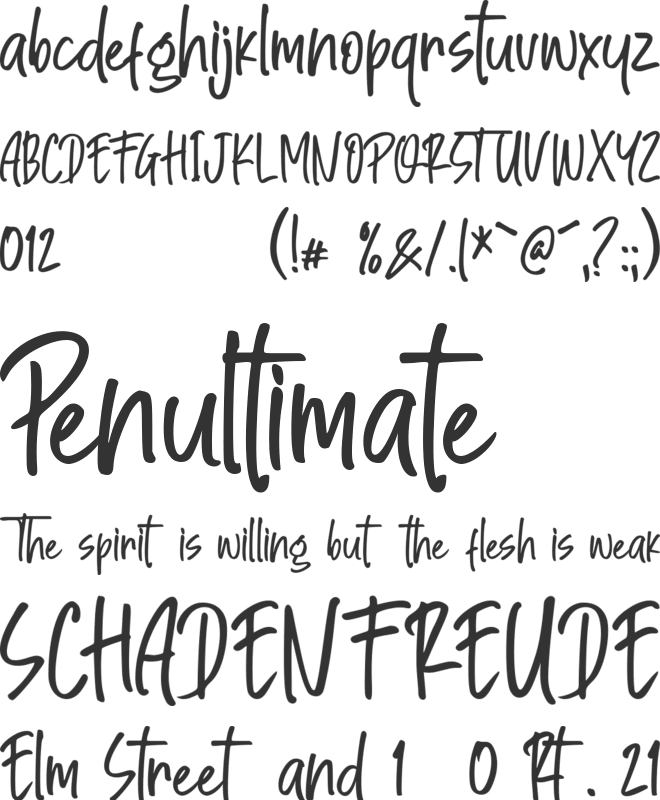 abcdefghijklmnopqrstuvwxyz
ABCDEFGHIJKLMNOPQRSTUVWXYZ
012 (!# %&/.(*`@´,?:;)
Penultimate
The spirit is willing but the flesh is weak
SCHADENFREUDE
Elm Street and 1 0 Rt. 21